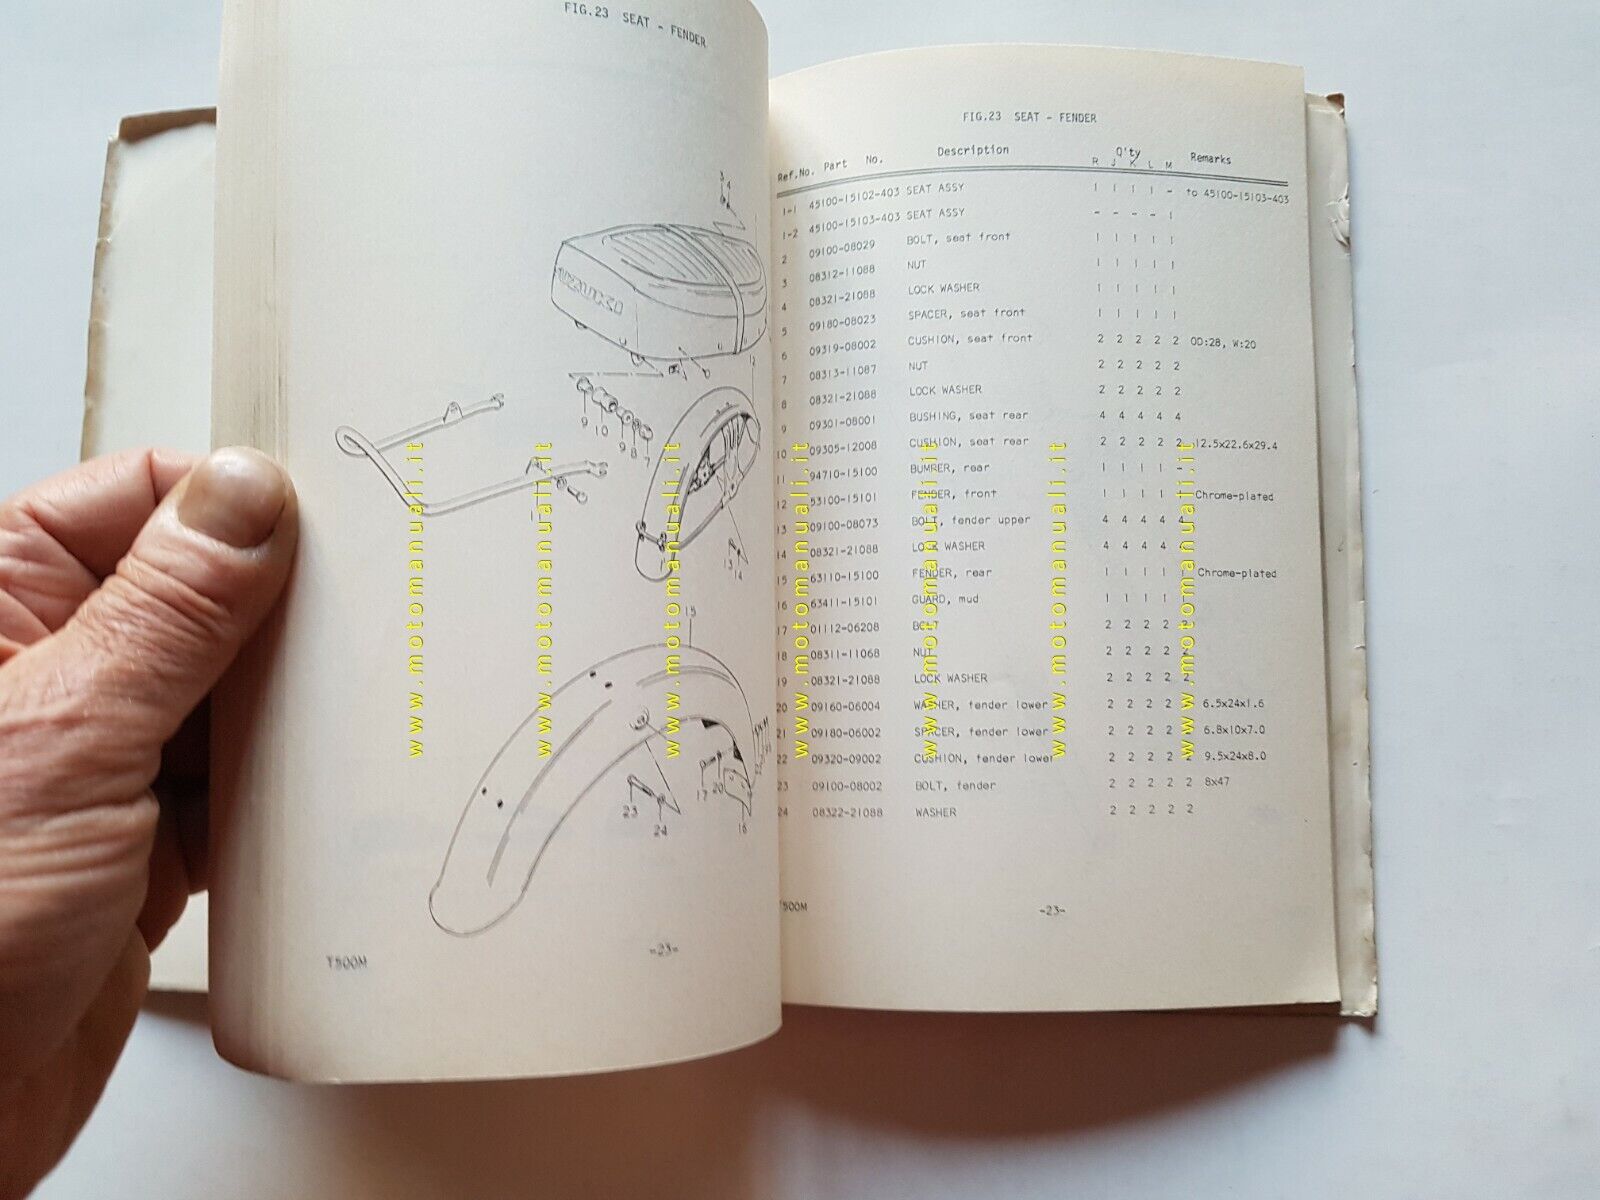 FIG.23 SEAT - FENDER
3
4
UZUKI
9
10
9
8
7
12
1
13
14
15
23
24
17
20
16
T500M
-23-
FIG.23 SEAT - FENDER
Ref.No. Part No. Description Q'ty Remarks
R J K L M
1-1 45100-15102-403 SEAT ASSY 1 1 1 1 - to 45100-15103-403
1-2 45100-15103-403 SEAT ASSY - - - - 1
2 09100-08029 BOLT, seat front 1 1 1 1 1
3 08312-11088 NUT 1 1 1 1 1
4 08321-21088 LOCK WASHER 1 1 1 1 1
5 09180-08023 SPACER, seat front 1 1 1 1 1
6 09319-08002 CUSHION, seat front 2 2 2 2 2 OD:28, W:20
7 08313-11087 NUT 2 2 2 2 2
8 08321-21088 LOCK WASHER 2 2 2 2 2
9 09301-08001 BUSHING, seat rear 4 4 4 4 4
10 09305-12008 CUSHION, seat rear 2 2 2 2 2 12.5x22.6x29.4
11 94710-15100 BUMPER, rear 1 1 1 1 -
12 53100-15101 FENDER, front 1 1 1 1 Chrome-plated
13 09100-08073 BOLT, fender upper 4 4 4 4 4
14 08321-21088 LOCK WASHER 4 4 4 4
15 63110-15100 FENDER, rear 1 1 1 1 1 Chrome-plated
16 63411-15101 GUARD, mud 1 1 1 1
17 01112-06208 BOLT 2 2 2 2 2
18 08311-11068 NUT 2 2 2 2 2
19 08321-21088 LOCK WASHER 2 2 2 2 2
20 09160-06004 WASHER, fender lower 2 2 2 2 6.5x24x1.6
21 09180-06002 SPACER, fender lower 2 2 2 2 6.8x10x7.0
22 09320-09002 CUSHION, fender lower 2 2 2 2 2 9.5x24x8.0
23 09100-08002 BOLT, fender 2 2 2 2 2 8x47
24 08322-21088 WASHER 2 2 2 2 2
T500M
-23-
www.motomanuali.it
www.motomanuali.it
www.motomanuali.it
www.motomanuali.it
www.motomanuali.it
www.motomanuali.it
www.motomanuali.it